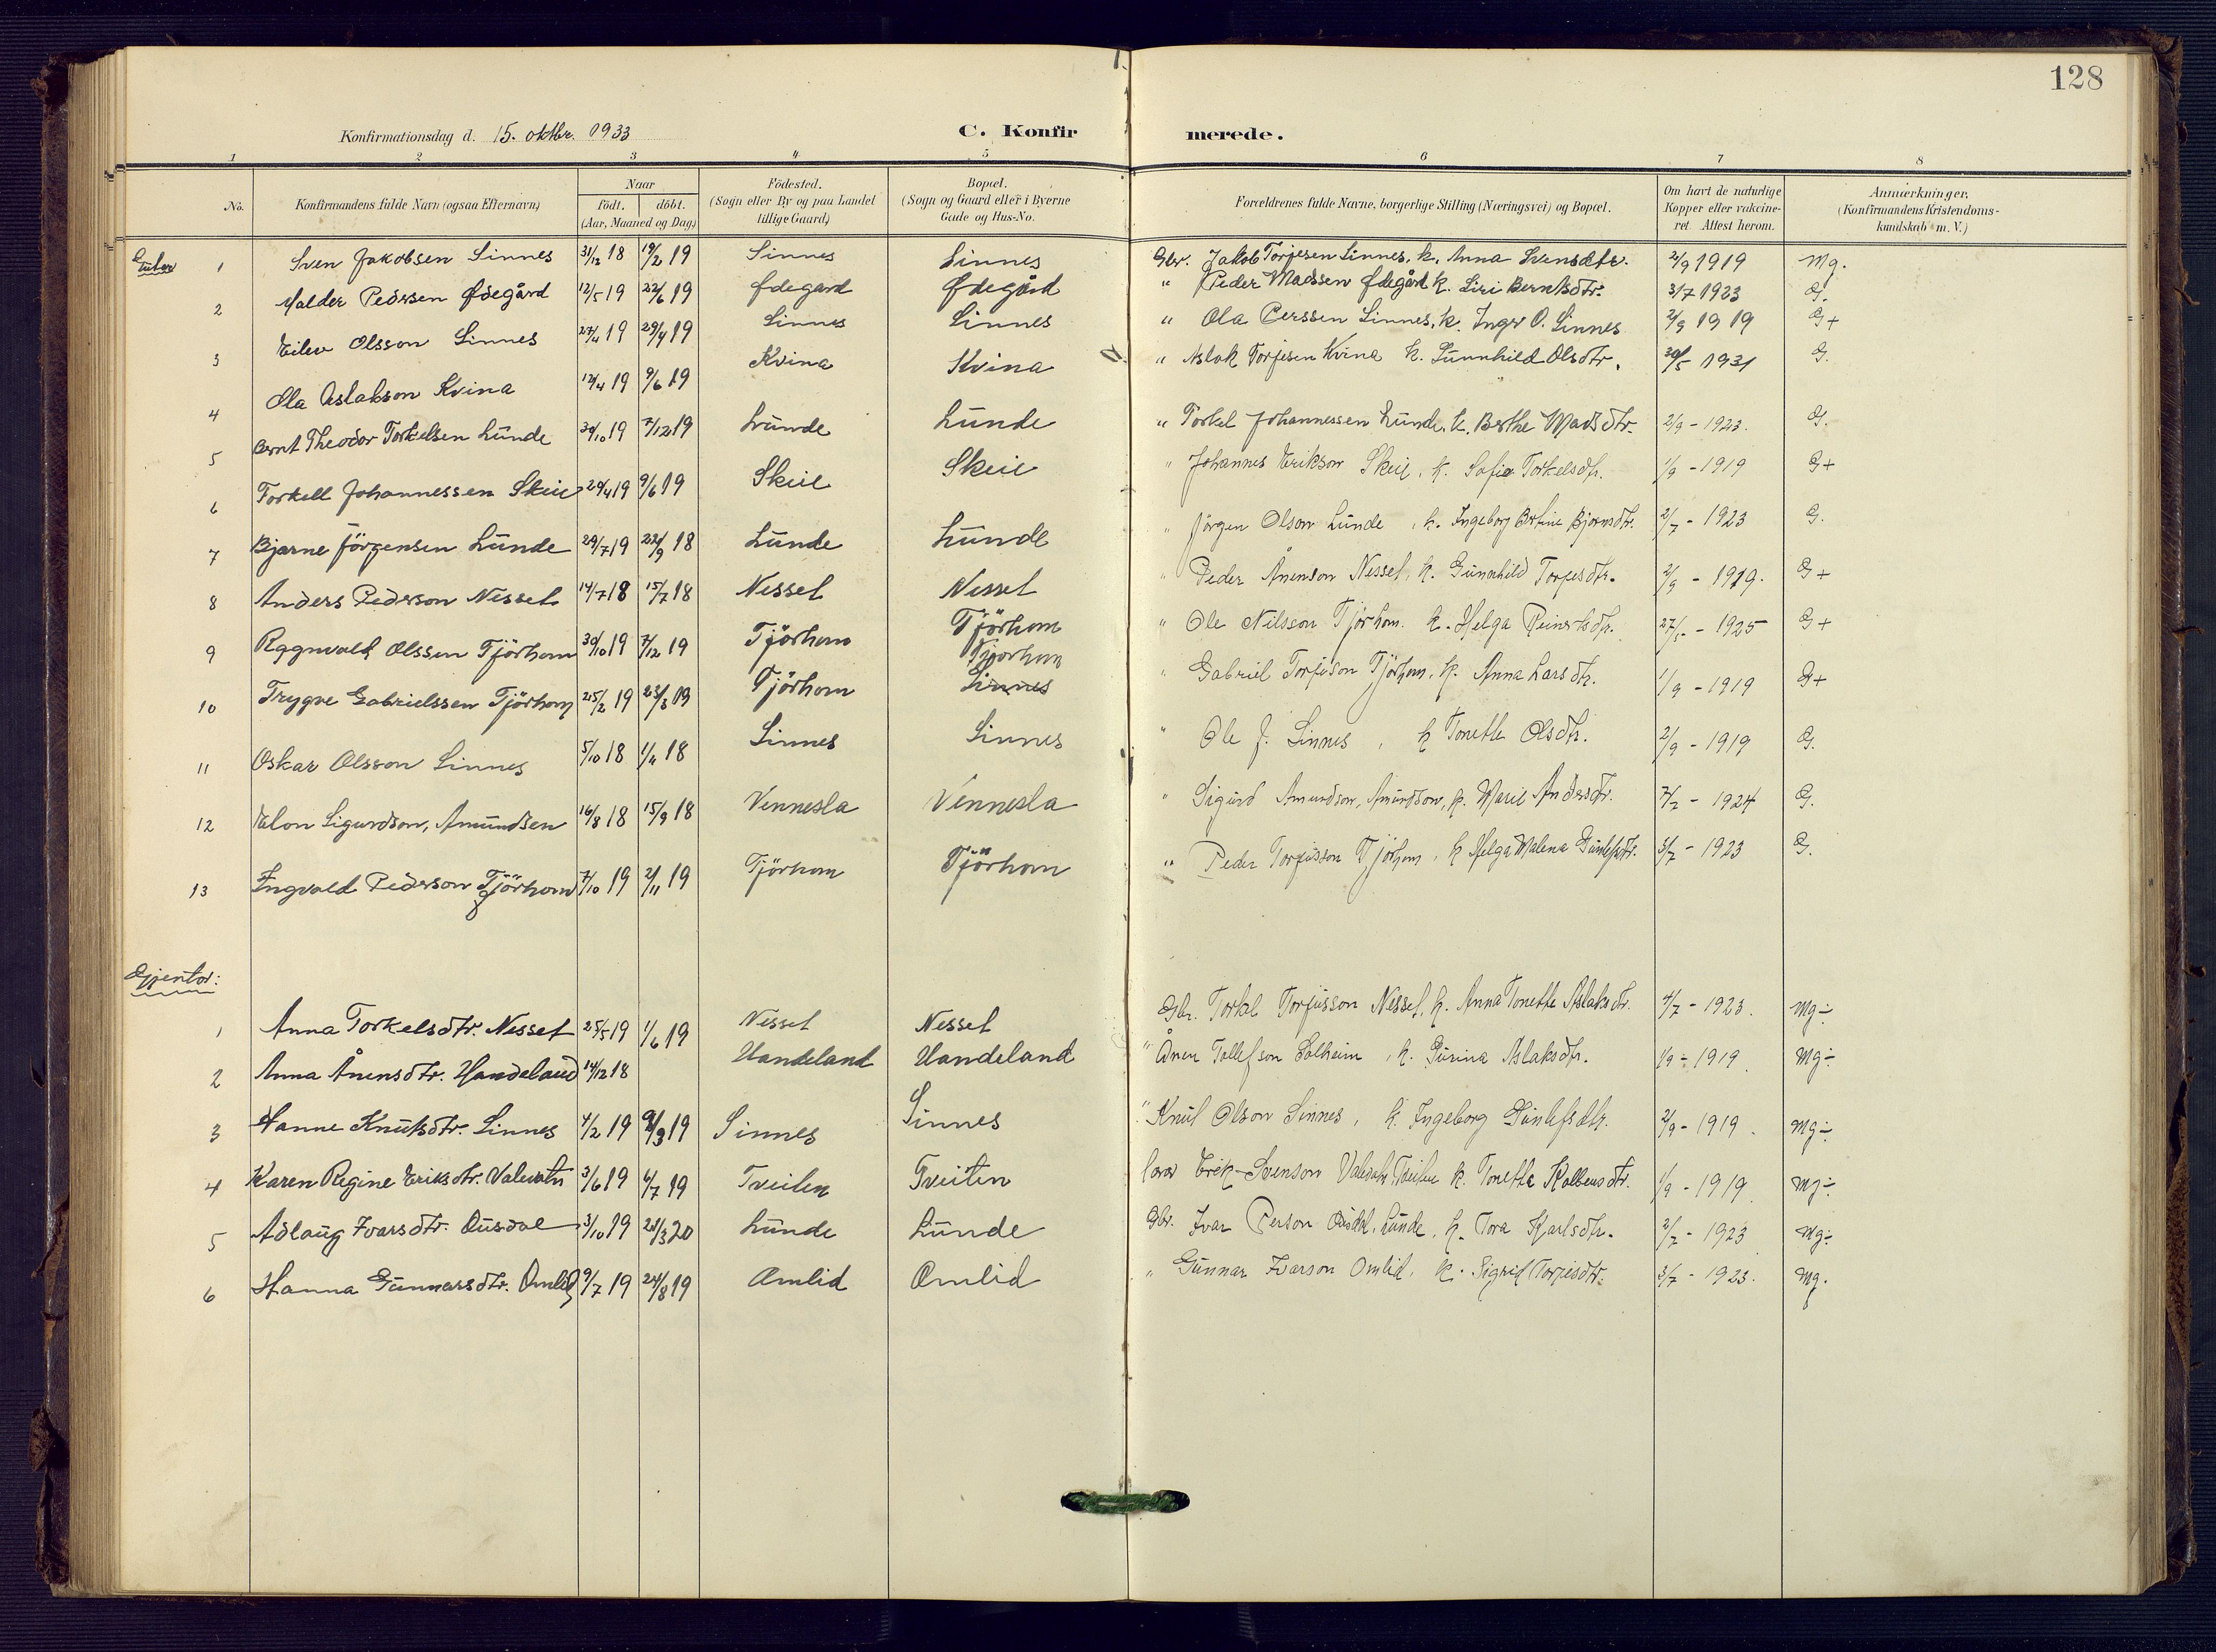 128
Konfirmationsdag d. 15. oktbr. 1933
C. Konfirmerede.
1 2 3 4 5 6 7 8
No.
Konfirmandens fulde Navn (ogsaa Efternavn)
Naar
födt. döbt.
(Aar, Maaned og Dag)
Födested.
(Sogn eller By og paa Landet
tillige Gaard)
Bopæl.
(Sogn og Gaard eller i Byerne
Gade og Hus-No.
Forældrenes fulde Navne, borgerlige Stilling (Næringsvei) og Bopæl.
Om havt de naturlige
Kopper eller vakcine-
ret. Attest herom.
Anmærkninger,
(Konfirmandens Kristendoms-
kundskab m. V.)
Guter
1 Sven Jakobsen Sinnes 31/12 18 19/2 19 Sinnes Sinnes Gbr. Jakob Torjesen Sinnes, k. Anna Svensdtr. 2/9 1919 Mg.
2 Halder Pedersen Ødegård 12/5 19 22/6 19 Ødegård Ødegård " Peder Madssen Ødegård k. Siri Berntsdtr. 3/7 1923 G.
3 Eilev Olsson Sinnes 27/4 19 29/4 19 Sinnes Sinnes " Ola Perssen Sinnes, k. Inger O. Sinnes 2/9 1919 G+
4 Ola Aslakson Kvina 12/4 19 9/6 19 Kvina Kvina " Aslak Torjesen Kvina k. Gunnhild Olsdtr. 30/5 1931 G.
5 Bernt Theodor Torkelsen Lunde 30/10 19 7/12 19 Lunde Lunde " Torkel Johannessen Lunde, k. Berthe Madsdtr. 2/9 - 1923. G.
6 Torkell Johannessen Skeie 29/4 19 9/6 19 Skeie Skeie " Johannes Erikson Skeie, k. Sofie Torkelsdtr. 1/9 - 1919 G+
7 Bjarne Jörgensen Lunde 29/7 19 22/9 18 Lunde Lunde " Jörgen Olson Lunde, k. Ingeborg Bertine Bjornsdtr. 2/7 - 1923 G.
8 Anders Pederson Nesset 14/7 18 15/7 18 Nesset Nesset " Peder Ånenson Nesset, k. Gunnhild Torjesdtr. 2/9 - 1919. G+
9 Ragnvald Olsson Tjörhom 30/10 19 7/12 19 Tjörhom Tjörhom " Ole Nilsson Tjörhom. k. Helga Reinertsdtr. - 1925 G+
10 Trygve Gabrielssen Tjörhom 25/2 19 23/3 19 Tjörhom Tjorhom Sinnes " Gabriel Torjeson Tjörhom, k. Anna Larsdtr. 1/9 - 1919 G+
11 Oskar Olsson Sinnes 5/10 18 1/4 18 Sinnes Sinnes " Ole J. Sinnes, k Tonette Olsdtr. 2/9 - 1919 G.
12 Elon Sigurdson, Amundsen 16/8 18 15/9 18 Vennesla Vennesla " Sigurd Amundson, Amundson, k. Marie Andersdtr. 7/2 - 1924 G.
13 Ingvald Pederson Tjörhom 7/10 19 2/11 19 Tjörhom Tjörhom " Peder Torjusson Tjörhom, k Helga Malena Gunlefsdtr. 3/7 - 1923 G.
Gjentor:
1 Anna Torkelsdtr. Nesset 25/5 19 1/6 19 Nesset Nesset Gbr. Torkel Torjusson Nesset, k. Anna Tonette Aslaksdtr. 4/7 - 1923. Mg÷
2 Anna Ånensdtr. Handeland 14/12 18 Handeland Handeland " Ånen Tollefson Solheim, k. Gurina Aslaksdtr. 1/9 - 1919. Mg÷
3 Hanne Knutsdtr. Sinnes 4/2 19 9/3 19 Sinnes Sinnes " Knut Olson Sinnes, k. Ingeborg Gunlefsdtr. 2/9 - 1919. Mg÷
4 Karen Regine Eriksdtr. Valevatn 3/6 19 6/7 19 Tveiten Tveiten Erik Svenson Valevatn, Tveiten k. Tonette Kolbensdtr. 1/9 - 1919 Mg÷
5 Adlaug Ivarsdtr. Ousdal 3/10 19 28/3 20 Lunde Lunde Gbr. Ivar Person Ousdal, Lunde, k. Tora Karlsdtr. 2/7 - 1923 Mg÷
6 Hanna Gunnarsdtr. Omlid 9/7 19 24/8 19 Omlid Omlid " Gunnar Ivarson Omlid, k. Sigrid Torjesdtr. 3/7 - 1923. Mg.